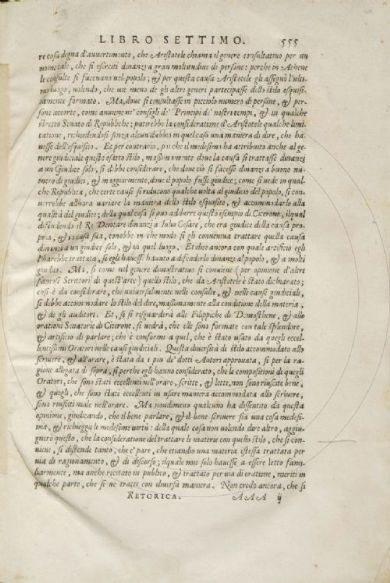 LIBRO SETTIMO. 555
re cosa degna d'auuertimento, che Aristotele chiama il genere consultatiuo per un
nometale, che si eserciti dinanzi a gran moltitudine di persone: perche in Athene
le consulte si faceuano nel popolo; & per questa causa Aristotele gli assegnò l'ulti-
mo luogo, uolendo, che un meno de gli altri generi participasse dello stilo esquisi-
tamente formato. Ma, doue si consultasse in picciolo numero di persone, & per-
sone accorte, come auuiene ne' consigli de' Principi de' nostri tempi, & in qualche
ristretto Senato di Republiche; patirebbe la consideratione d'Aristotele qualche limi-
tatione, richiedendosi senza alcun dubbio in quel caso una maniera di dire, che ha-
uesse dell'esquisito. Et per contrario, poi che il medesimo ha attribuito anche al ge-
nere giudiciale questo esatto stilo, massimamente doue la causa si trattasse dinanzi
a un Giudice solo, si debbe considerare, che doue ciò si facesse dinanzi a buono nu-
mero di giudici, & massimamente, doue il popolo fusse giudice; come si uede in qual-
che Republica, che certe cause si riducono qualche uolta al giudicio del popolo, si con-
uerrebbe alhora uariare la maniera dello stilo esquisito, & accommodarlo alla
qualità del giudice; della qual cosa si può addurre questo esempio di Cicerone, il qual
difendendo il Re Deiotaro dinanzi a Iulio Cesare, che era giudice della causa pro-
pria, & in casa sua, conobbe in che modo si gli conueniua trattare quella causa
dinanzi a un giudice solo, & in quel luogo. Et dice ancora con quale artificio egli
l'harebbe trattata, si egli hauesse hauuto a difenderlo dinanzi al popolo, & a molti
giudici. Ma, si come nel genere dimostratiuo si conuiene (per opinione d'altri
famosi Scrittori di quest'arte) quello stilo, che da Aristotele è stato dichiarato;
così è da considerare, che uniuersalmente nelle consulte, & nelle cause giudiciali,
si debbe accommodare lo stilo del dire, massimamente alla conditione della materia,
& de gli auditori. Et, si si risguarderà alle Filippiche di Demosthene, & alle
orationi Senatorie di Cicerone, si uedrà, che elle sono formate con tale splendore,
& artificio di parlare, che è conforme a quel, che è stato usato da quegli eccel-
lentissimi Oratori nelle cause giudiciali. Questa diuersità di stilo accommodato allo
scriuere, & all'orare, è stata da i piu de' dotti Autori approuata, si per la ra-
gione allegata di sopra, si perche egli hanno considerato, che le compositioni di quegli
Oratori, che sono stati eccellenti nell'orare, scritte, & lette, non sono riuscite bene,
& quegli, che sono stati eccellenti in usare maniera accommodata allo scriuere,
sono riusciti male nell'orare. Ma nondimeno qualcuno ha dissentito da questa
opinione, giudicando, che il bene parlare, & il bene scriuere sia una cosa medesi-
ma, & richiegga le medesime uirtù: della quale cosa non uolendo dire altro, aggiu-
gnerò questo, che la consideratione del trattare le materie con quello stilo, che si con-
uiene, si distende tanto; che e' pare, che etiandio una materia istessa trattata per
uia di ragionamento, & di discorso; il quale non solo hauesse a essere letto fami-
liarmente, ma anche recitato in publico, & trattato per uia di oratione, meriti in
qualche parte, che si ne tratti con diuersa maniera. Non credo ancora, che si
RETORICA. AAAA ij